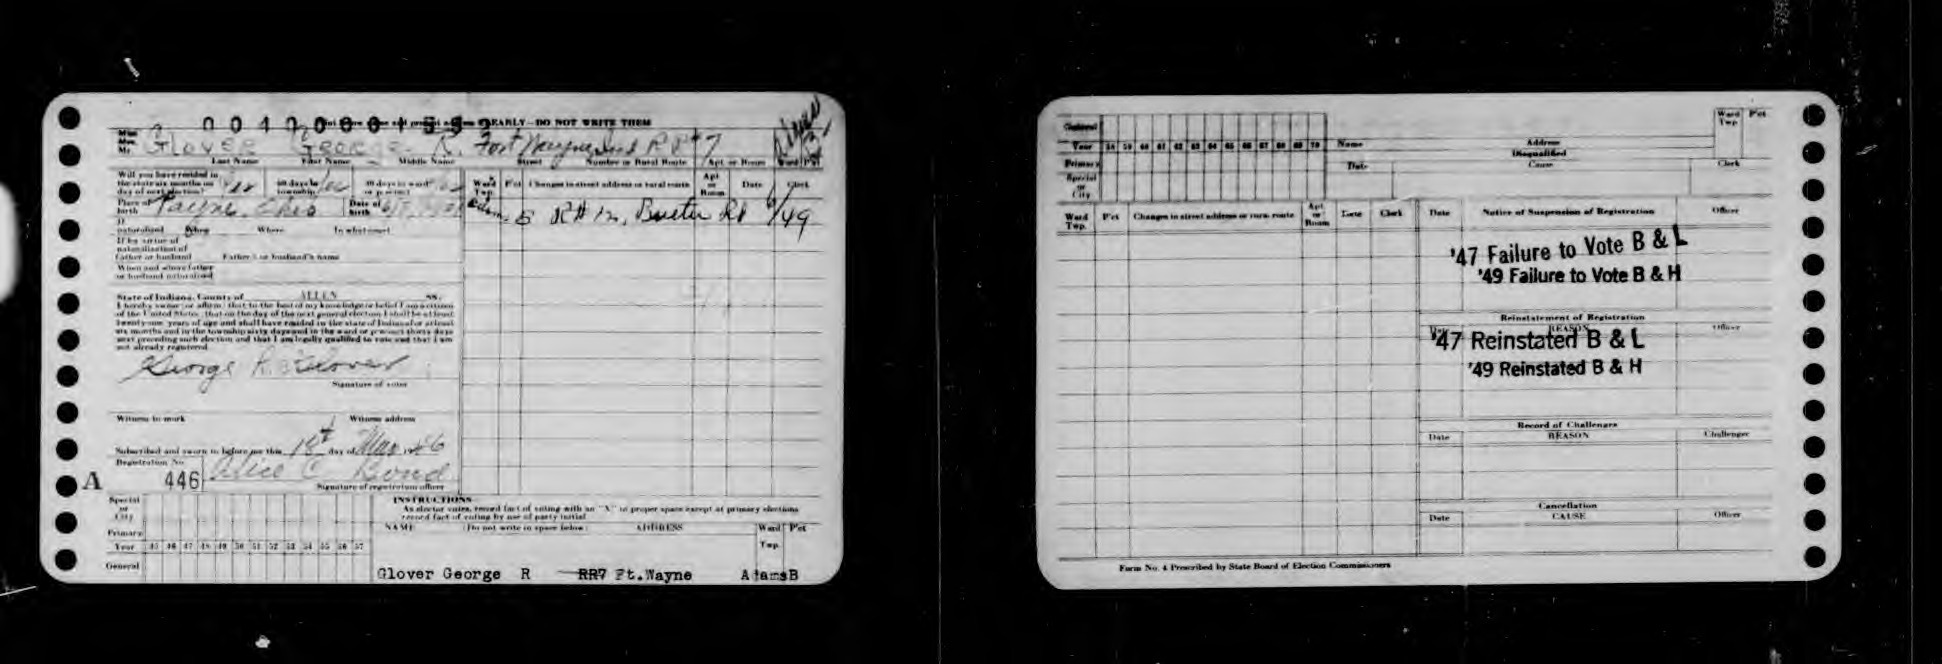 0040000155
Print name and present address CLEARLY—DO NOT WRITE THEM
Miss
Mrs.
Mr. Glover George R. Fort Wayne Ind R R #7 Adams B
Last Name First Name Middle Name Street Number or Rural Route Apt. or Room Ward P'ct
Will you have resided in
the state six months on
day of next election? Yes 60 days in
township Yes 30 days in ward
or precinct Yes
Place of
birth Payne, Ohio Date of
birth
If
naturalized When Where In what court
If by virtue of
naturalization of
father or husband Father's or husband's name
When and where father
or husband naturalized
State of Indiana, County of ALLEN SS:
I hereby swear (or affirm) that to the best of my knowledge or belief I am a citizen
of the United States, that on the day of the next general election I shall be at least
twenty-one years of age and shall have resided in the state of Indiana for at least
six months and in the township sixty days and in the ward or precinct thirty days
next preceding such election and that I am legally qualified to vote and that I am
not already registered.
George R. Glover
Signature of voter
Witness to mark Witness address
Subscribed and sworn to before me this 18th day of Mar 1946
Registration No.
A 446 Alice C. Bond
Signature of registration officer
Ward
Twp. P'ct Changes in street address or rural route Apt.
or
Room Date Clerk
Adams B R# 12, Bueter Rd 6/49
Special
or
City
Primary
Year 45 46 47 48 49 50 51 52 53 54 55 56 57
General
INSTRUCTIONS
As elector votes, record fact of voting with an "X" in proper space except at primary elections
record fact of voting by use of party initial
NAME (Do not write in space below) ADDRESS Ward
Twp. P'ct
Glover George R RR7 Ft.Wayne AdamsB
General
Year 58 59 60 61 62 63 64 65 66 67 68 69 70
Primary
Special
or
City
Name Address Ward
Twp P'ct
Disqualified
Date Cause Clerk
Ward
Twp. P'ct Changes in street address or rural route Apt.
or
Room Date Clerk
Date Notice of Suspension of Registration Officer
'47 Failure to Vote B & L
'49 Failure to Vote B & H
Reinstatement of Registration
Date REASON Officer
'47 Reinstated B & L
'49 Reinstated B & H
Record of Challenges
Date REASON Challenger
Cancellation
Date CAUSE Officer
Form No. 4 Prescribed by State Board of Election Commissioners